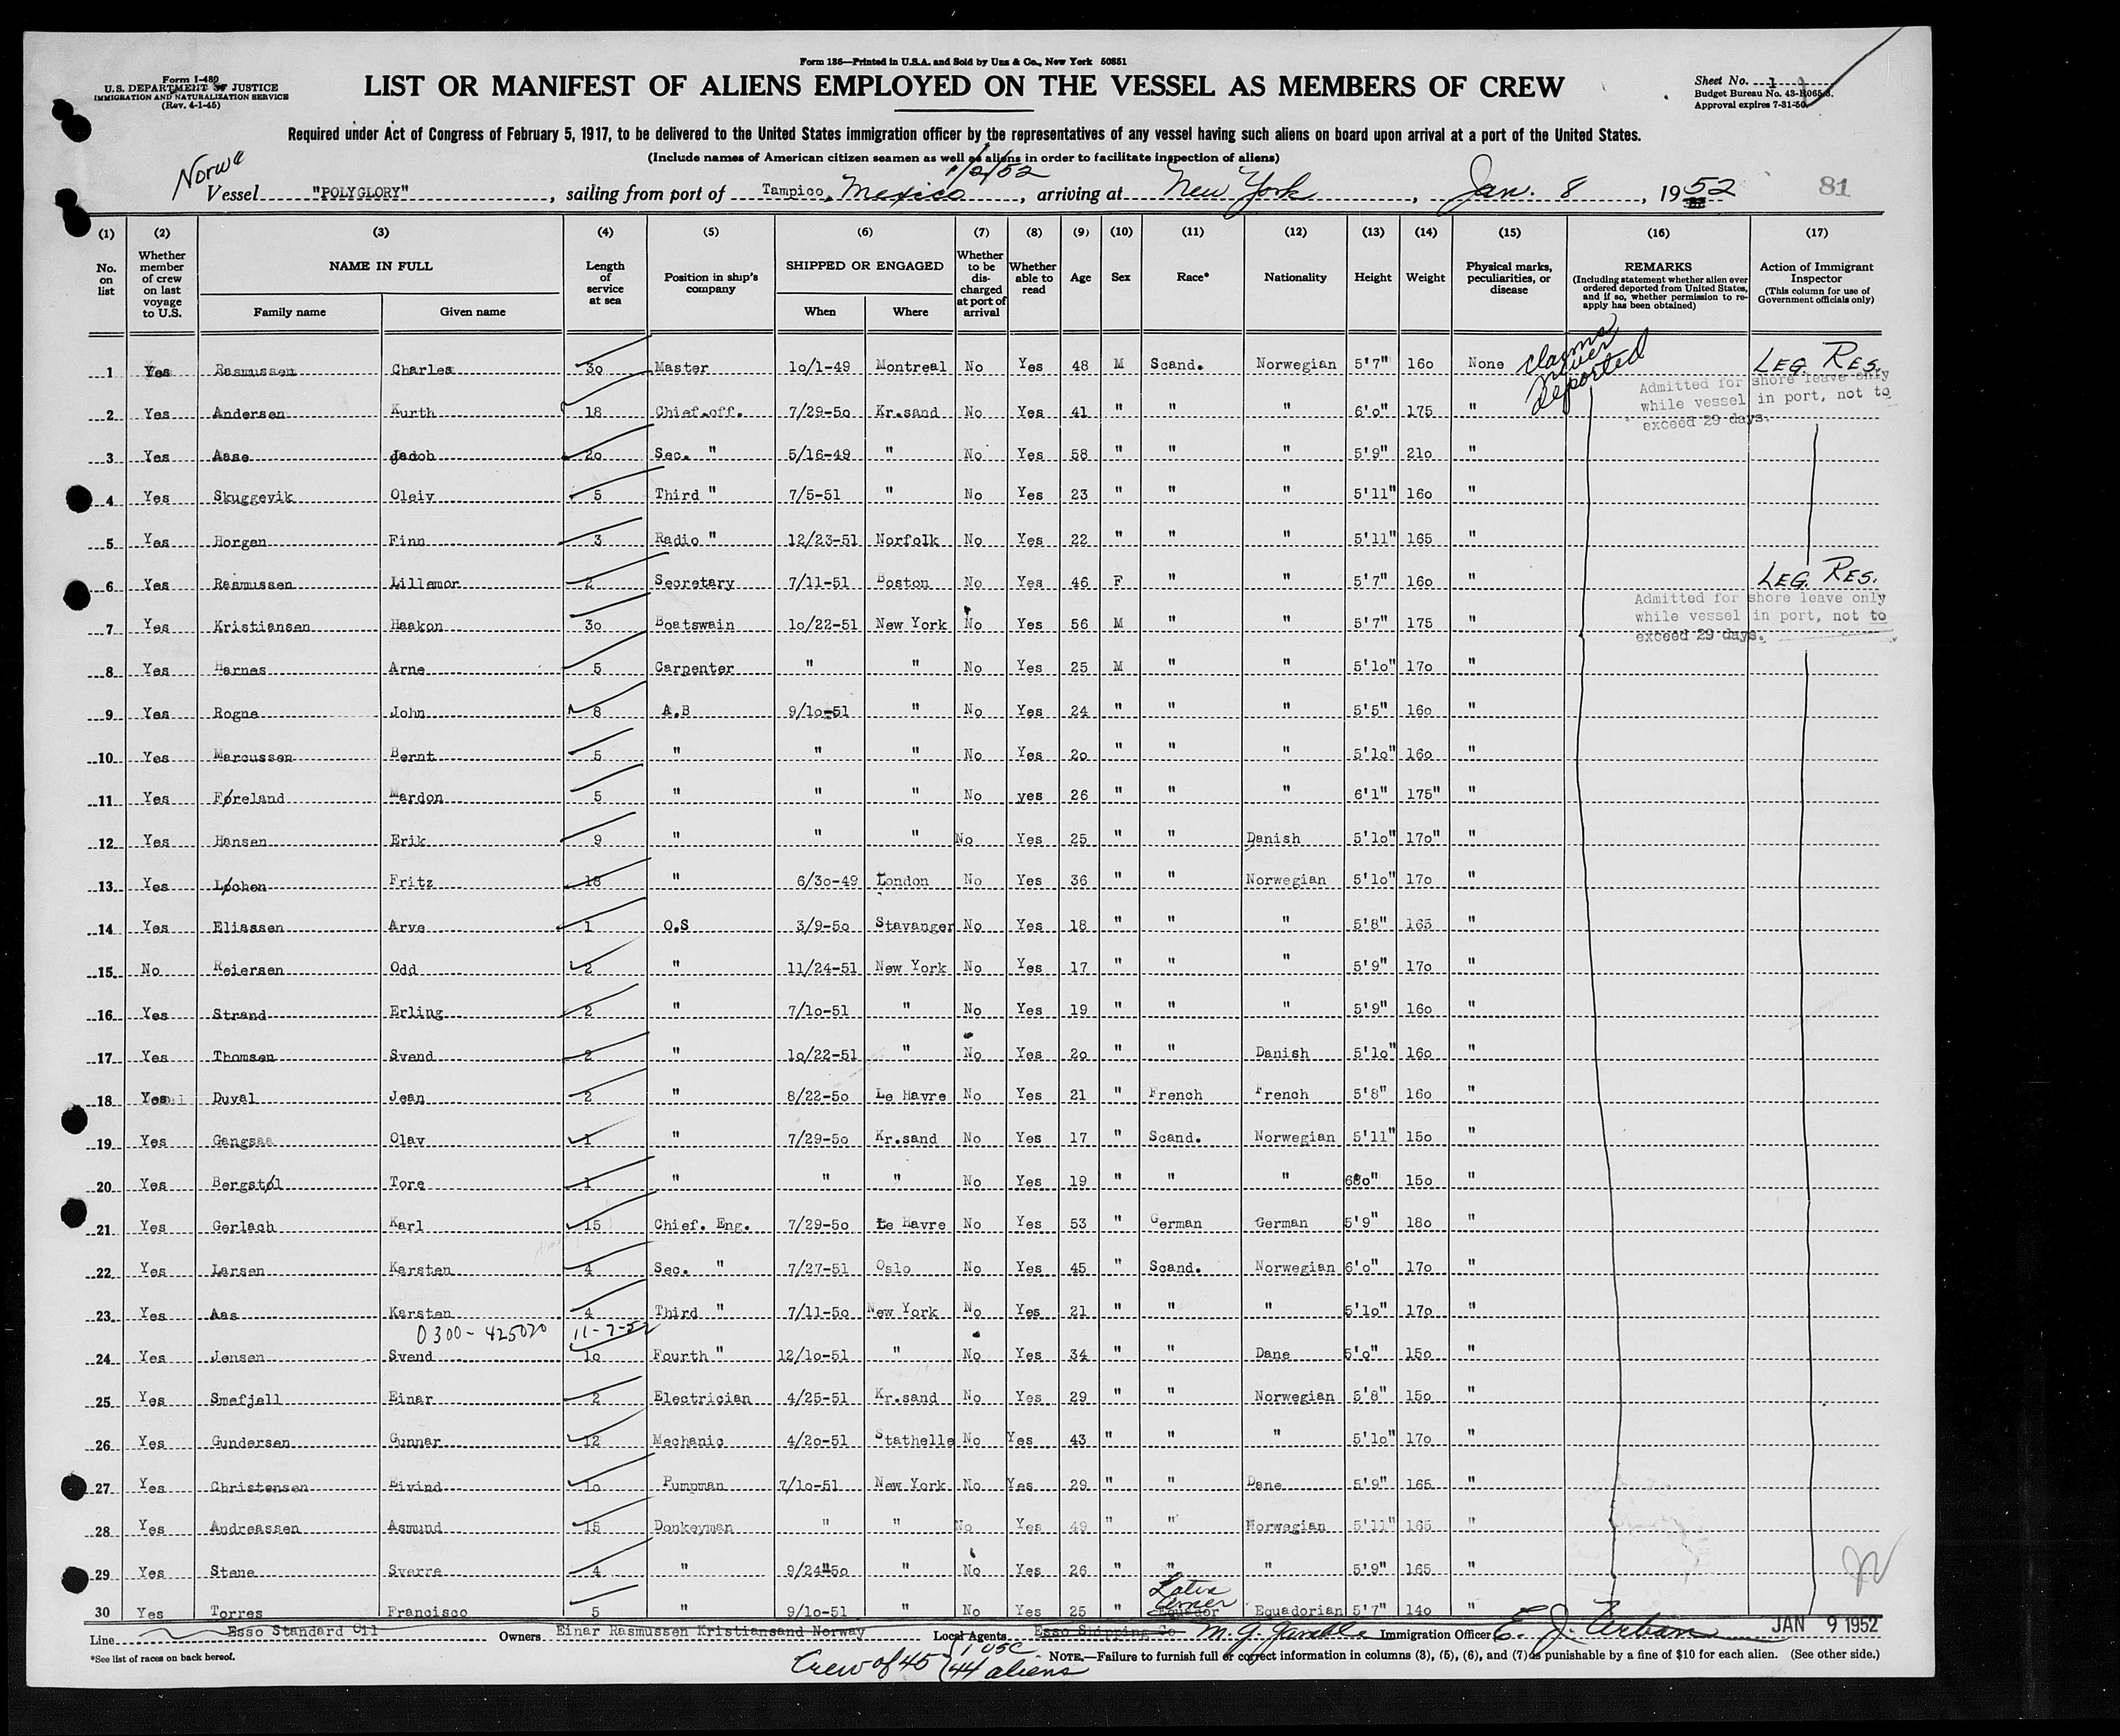 Form 136—Printed in U.S.A. and Sold by Unz & Co., New York 50851
Form I-480
U.S. DEPARTMENT OF JUSTICE
IMMIGRATION AND NATURALIZATION SERVICE
(Rev. 4-1-45)
LIST OR MANIFEST OF ALIENS EMPLOYED ON THE VESSEL AS MEMBERS OF CREW
Sheet No. 1
Budget Bureau No. 43-R065.3.
Approval expires 7-31-50.
Required under Act of Congress of February 5, 1917, to be delivered to the United States immigration officer by the representatives of any vessel having such aliens on board upon arrival at a port of the United States.
(Include names of American citizen seamen as well as aliens in order to facilitate inspection of aliens)
Norwe 1/2/52
Vessel "POLYGLORY", sailing from port of Tampico, Mexico, arriving at New York, Jan. 8, 1952 81
(1) (2) (3) (4) (5) (6) (7) (8) (9) (10) (11) (12) (13) (14) (15) (16) (17)
No. on list Whether member of crew on last voyage to U.S. NAME IN FULL Family name Given name Length of service at sea Position in ship's company SHIPPED OR ENGAGED When Where Whether to be discharged at port of arrival Whether able to read Age Sex Race* Nationality Height Weight Physical marks, peculiarities, or disease REMARKS (Including statement whether alien ever ordered deported from United States, and if so, whether permission to reapply has been obtained) Action of Immigrant Inspector (This column for use of Government officials only)
1 Yes Rasmussen Charles 30 Master 10/1-49 Montreal No Yes 48 M Scand. Norwegian 5'7" 160 None claims never deported LEG. RES.
Admitted for shore leave only while vessel in port, not to exceed 29 days.
2 Yes Andersen Kurth 18 Chief.off. 7/29-50 Kr.sand No Yes 41 " " " 6'0" 175 "
3 Yes Aase Jadoh 20 Sec. " 5/16-49 " No Yes 58 " " " 5'9" 210 "
4 Yes Skuggevik Oleiv 5 Third " 7/5-51 " No Yes 23 " " " 5'11" 160 "
5 Yes Horgen Finn 3 Radio " 12/23-51 Norfolk No Yes 22 " " " 5'11" 165 "
6 Yes Rasmussen Lillemor 2 Secretary 7/11-51 Boston No Yes 46 F " " 5'7" 160 " LEG. RES.
Admitted for shore leave only while vessel in port, not to exceed 29 days.
7 Yes Kristiansen Haakon 30 Boatswain 10/22-51 New York No Yes 56 M " " 5'7" 175 "
8 Yes Harnes Arne 5 Carpenter " " No Yes 25 M " " 5'10" 170 "
9 Yes Rogne John 8 A.B 9/10-51 " No Yes 24 " " " 5'5" 160 "
10 Yes Marcussen Bernt 5 " " " No Yes 20 " " " 5'10" 160 "
11 Yes Føreland Mardon 5 " " " No yes 26 " " " 6'1" 175" "
12 Yes Hansen Erik 9 " " " No Yes 25 " " Danish 5'10" 170" "
13 Yes Løchen Fritz 18 " 6/30-49 London No Yes 36 " " Norwegian 5'10" 170 "
14 Yes Eliassen Arve 1 O.S 3/9-50 Stavanger No Yes 18 " " " 5'8" 165 "
15 No Reiersen Odd 2 " 11/24-51 New York No Yes 17 " " " 5'9" 170 "
16 Yes Strand Erling 2 " 7/10-51 " No Yes 19 " " " 5'9" 160 "
17 Yes Thomsen Svend 2 " 10/22-51 " No Yes 20 " " Danish 5'10" 160 "
18 Yes Duval Jean 2 " 8/22-50 Le Havre No Yes 21 " French French 5'8" 160 "
19 Yes Gangsaa Olav 1 " 7/29-50 Kr.sand No Yes 17 " Scand. Norwegian 5'11" 150 "
20 Yes Bergstøl Tore 1 " " " No Yes 19 " " " 6'0" 150 "
21 Yes Gerlach Karl 15 Chief. Eng. 7/29-50 Le Havre No Yes 53 " German German 5'9" 180 "
22 Yes Larsen Karsten 4 Sec. " 7/27-51 Oslo No Yes 45 " Scand. Norwegian 6'0" 170 "
23 Yes Aas Karsten 4 Third " 7/11-50 New York No Yes 21 " " " 5'10" 170 "
0300-425020 11-7-52
24 Yes Jensen Svend 10 Fourth " 12/10-51 " No Yes 34 " " Dane 5'0" 150 "
25 Yes Smefjell Einar 2 Electrician 4/25-51 Kr.sand No Yes 29 " " Norwegian 5'8" 150 "
26 Yes Gundersen Gunnar 12 Mechanic 4/20-51 Stathelle No Yes 43 " " " 5'10" 170 "
27 Yes Christensen Eivind 10 Pumpman 7/10-51 New York No Yes 29 " " Dane 5'9" 165 "
28 Yes Andreassen Asmund 15 Donkeyman " " No Yes 49 " " Norwegian 5'11" 165 "
29 Yes Stene Sverre 4 " 9/24-50 " No Yes 26 " " " 5'9" 165 "
30 Yes Torres Francisco 5 " 9/10-51 " No Yes 25 " Latin Amer Equador Equadorian 5'7" 140 "
Line Esso Standard Oil Owners Einar Rasmussen Kristiansand Norway Local Agents Esso Shipping Co Immigration Officer E. J. Urban JAN 9 1952
*See list of races on back hereof. Crew of 45 1 USC 44 aliens NOTE.—Failure to furnish full or correct information in columns (3), (5), (6), and (7) is punishable by a fine of $10 for each alien. (See other side.)